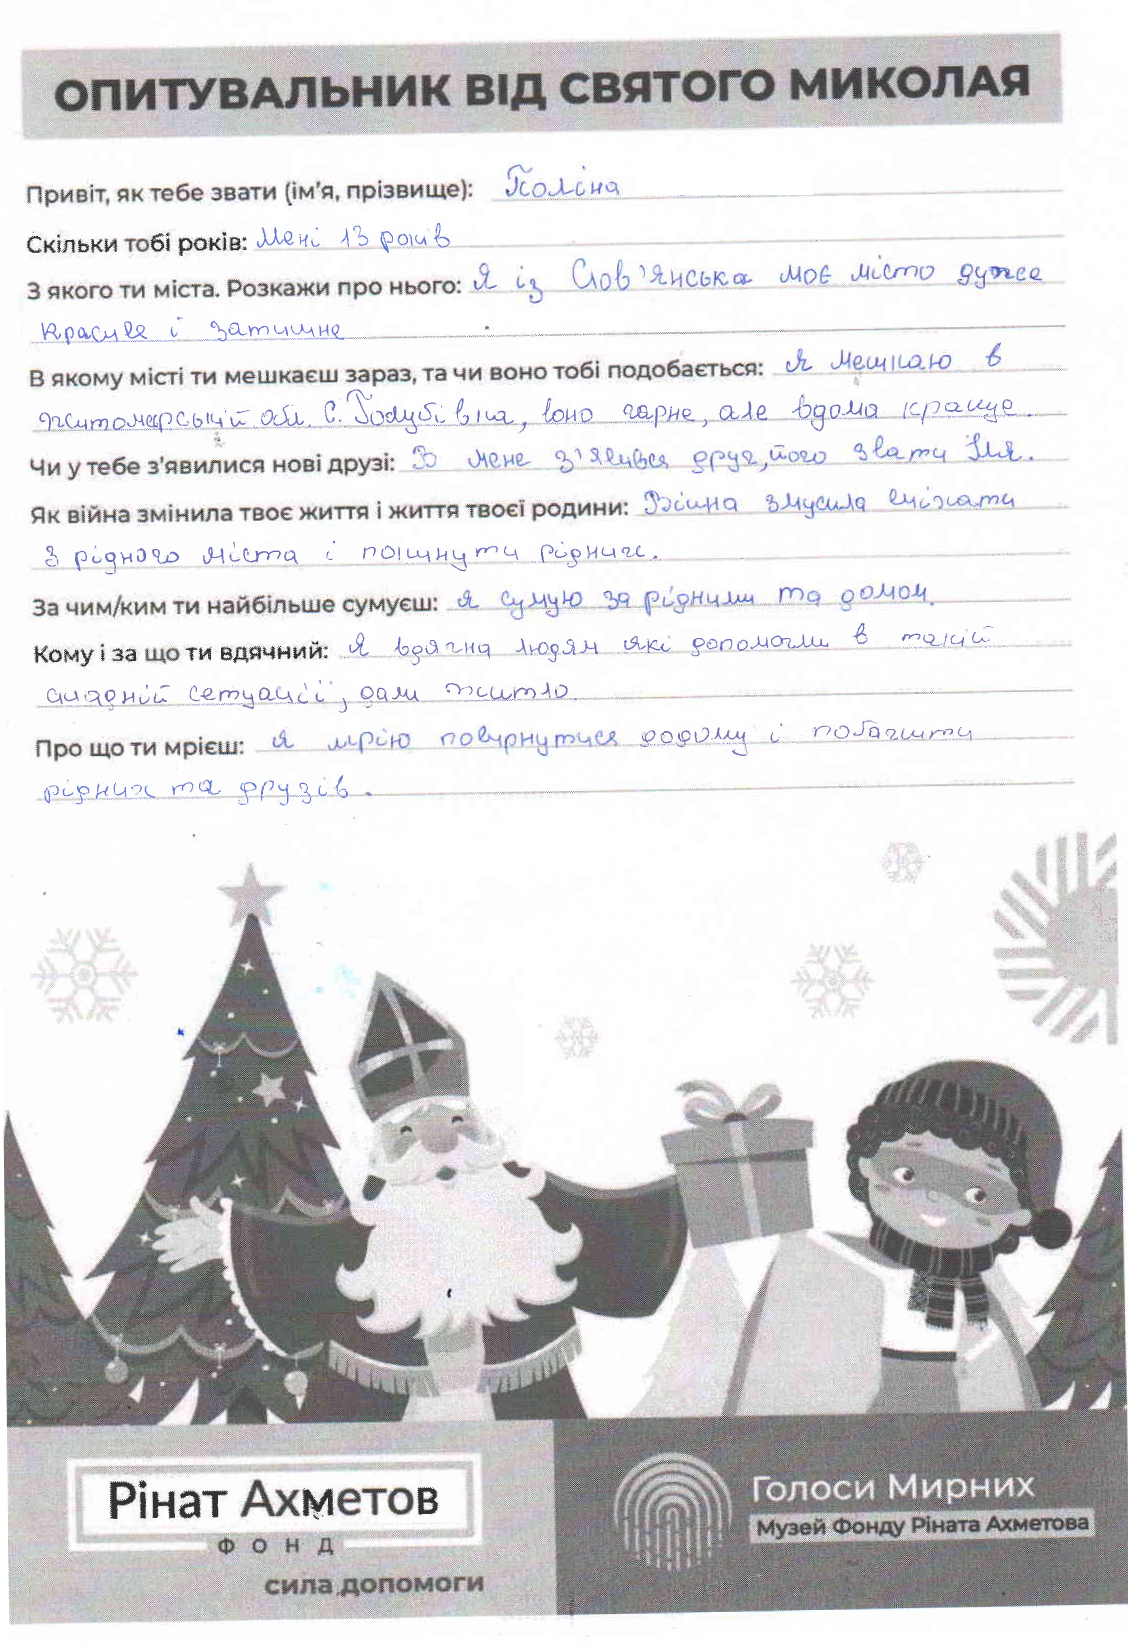 ОПИТУВАЛЬНИК ВІД СВЯТОГО МИКОЛАЯ
Привіт, як тебе звати (ім'я, прізвище): Поліна
Скільки тобі років: Мені 13 років
З якого ти міста. Розкажи про нього: Я із Слов'янська моє місто дуже
красиве і затишне
В якому місті ти мешкаєш зараз, та чи воно тобі подобається: Я мешкаю в
Житомирській обл. С. Голубівка, воно гарне, але вдома краще.
Чи у тебе з'явилися нові друзі: В мене з'явився друг, його звати Ілля.
Як війна змінила твоє життя і життя твоєї родини: Війна змусила виїхати
з рідного міста і покинути рідних.
За чим/ким ти найбільше сумуєш: я сумую за рідними та домом.
Кому і за що ти вдячний: Я вдячна людям які допомогли в такій
складній сетуації, дали житло
Про що ти мрієш: я мрію повернутися додому і побачити
рідних та друзів.
Рінат Ахметов
ФОНД
сила допомоги
Голоси Мирних
Музей Фонду Ріната Ахметова